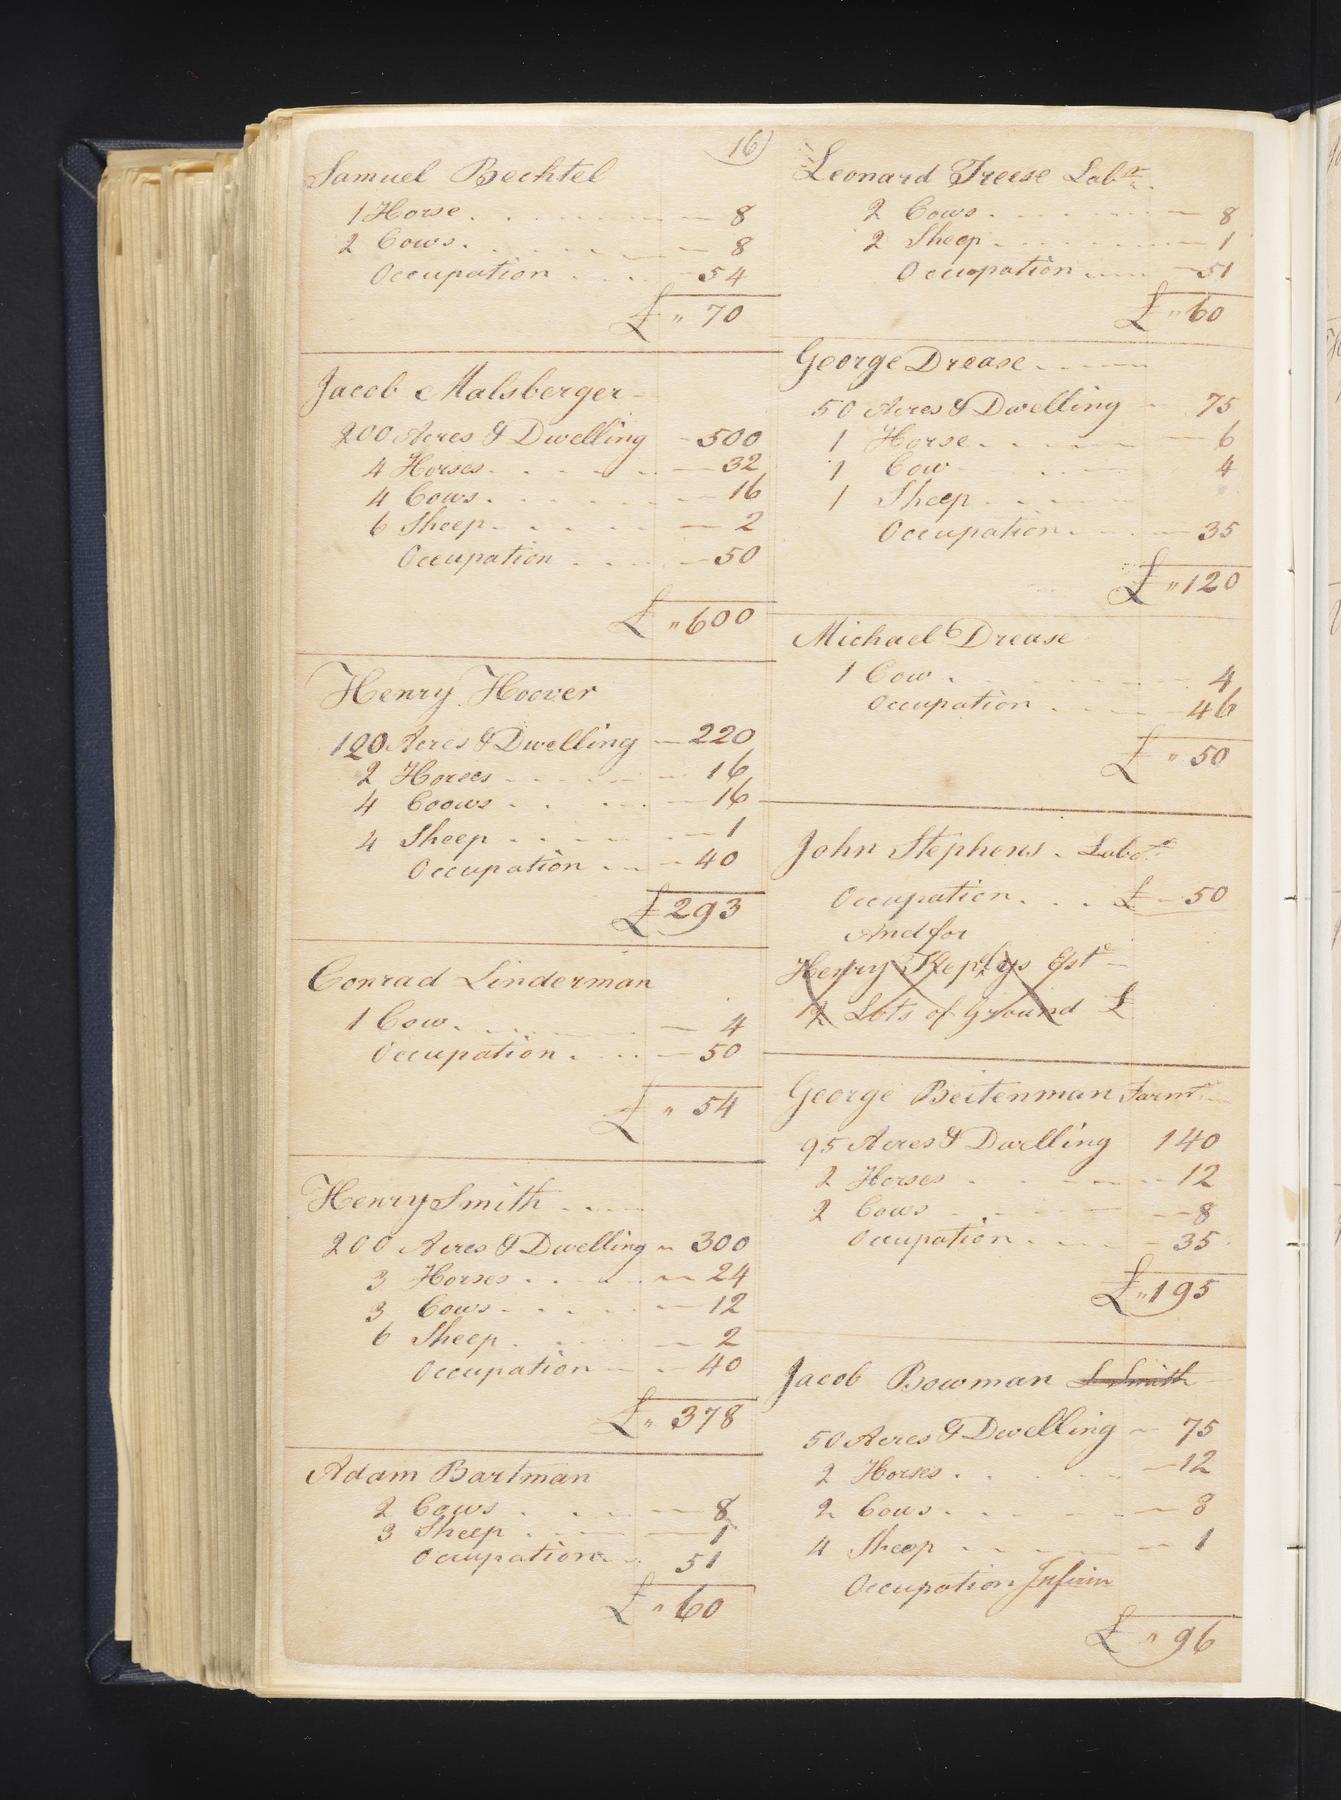 16
Samuel Bechtel
1 Horse 8
2 Cows 8
Occupation 54
£ " 70
Jacob Malsberger
200 Acres & Dwelling 500
4 Horses 32
4 Cows 16
6 Sheep 2
Occupation 50
£ " 600
Henry Hoover
120 Acres & Dwelling 220
2 Horses 16
4 Coows 16
4 Sheep 1
Occupation 40
£ 293
Conrad Linderman
1 Cow 4
Occupation 50
£ " 54
Henry Smith
200 Acres & Dwelling 300
3 Horses 24
3 Cows 12
6 Sheep 2
Occupation 40
£ " 378
Adam Bartman
2 Cows 8
3 Sheep 1
Occupation 51
£ " 60
Leonard Freese Labr
2 Cows 8
2 Sheep 1
Occupation 51
£ " 60
George Drease
50 Acres & Dwelling 75
1 Horse 6
1 Cow 4
1 Sheep
Occupation 35
£ " 120
Michael Drease
1 Cow 4
Occupation 46
£ " 50
John Stephens Labr
Occupation £ 50
And for
Henry Keplys Est
2 Lots of Ground £
George Beitenman Farmr
95 Acres & Dwelling 140
2 Horses 12
2 Cows 8
Occupation 35
£ " 195
Jacob Bowman Smith
50 Acres & Dwelling 75
2 Horses 12
2 Cows 8
4 Sheep 1
Occupation Infirm
£ " 96